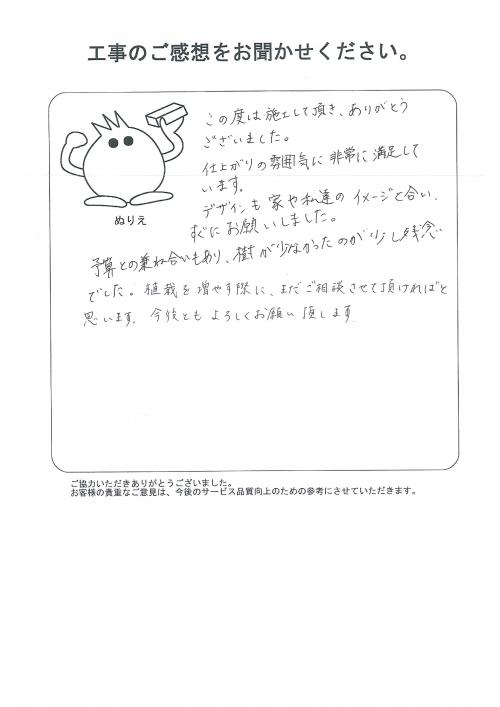 工事のご感想をお聞かせください。
この度は施工して頂き、ありがとう
ございました。
仕上がりの雰囲気に非常に満足して
います。
デザインも家や私達のイメージと合い、
すぐにお願いしました。
ぬりえ
予算との兼ね合いもあり、樹が少なかったのが少し残念
でした。植栽を増やす際に、まだご相談させて頂ければと
思います。今後ともよろしくお願い頂します
ご協力いただきありがとうございました。
お客様の貴重なご意見は、今後のサービス品質向上のための参考にさせていただきます。